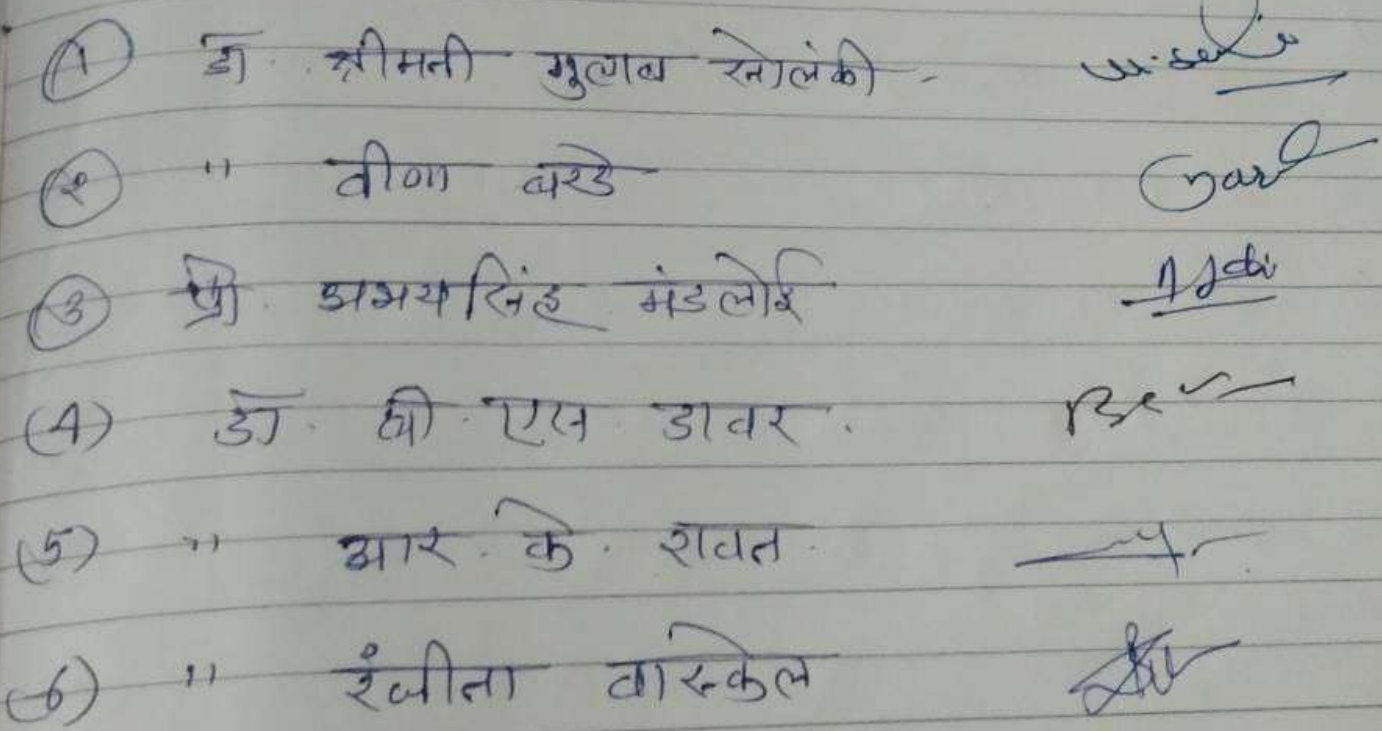 (1) डॉ. श्रीमती गुलाब सोलंकी -
(२) " वीणा बरडे
(3) प्रो. अभयसिंह मंडलोई
(4) डॉ. बी. एस डावर.
(5) " आर. के. रावत.
(6) " रंजीता वास्केल